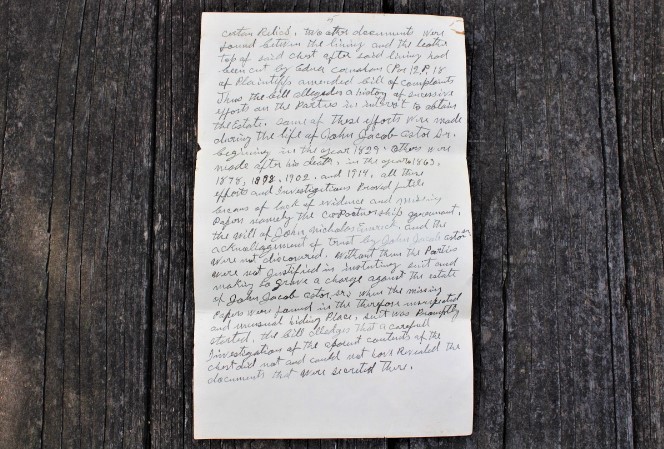 certain Relics, two other documents were
found between the lining and the leather
top of said chest after said lining had
been cut by Edna (Par 12, P. 18
of Plaintiffs amended bill of complaints
Thus the bill alledges a history of sucessive
efforts on the Parties in intrest to obtain
the Estate. some of these efforts were made
during the life of John Jacob Astor Sr.
begining in the year 1829. others were
made after his death, in the years 1863,
1878, 1898, 1902, and 1914, all these
efforts and Investigations Proved futile
because of lack of evidence and missing
Papers namely the coPartnership
the will of John Nicholas Emrick, and the
of trust by John Jacob Astor
were not discovered. Without them the Parties
were not Justified in suit and
making so grave a charge against the estate
of John Jacob Astor, sr. when the missing
Papers were found in the therefore unexpected
and unusual hiding Place, suit was Promptly
started, the bill alledges that a careful
Investigations of the aparent contents of the
chest did not and could not have Revealed the
documents that were secreted there.